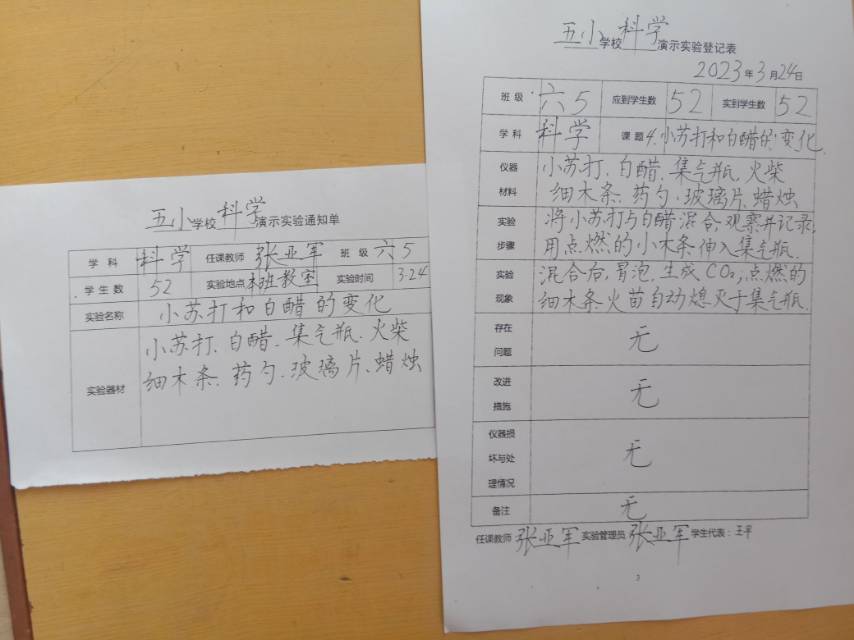 五小学校科学演示实验通知单
学科 科学 任课教师 张亚军 班级 六5
学生数 52 实验地点 本班教室 实验时间 3.24
实验名称 小苏打和白醋的变化
实验器材 小苏打、白醋、集气瓶、火柴
细木条、药勺、玻璃片、蜡烛
五小学校科学演示实验登记表
2023年3月24日
班级 六5 应到学生数 52 实到学生数 52
学科 科学 课题 4.小苏打和白醋的变化
仪器材料 小苏打、白醋、集气瓶、火柴
细木条、药勺、玻璃片、蜡烛
实验步骤 将小苏打与白醋混合,观察并记录,
用点燃的小木条伸入集气瓶.
实验现象 混合后,冒泡,生成CO₂,点燃的
细木条火苗自动熄灭于集气瓶.
存在问题 无
改进措施 无
仪器损坏与处理情况 无
备注 无
任课教师:张亚军 实验管理员 张亚军 学生代表:王平
3